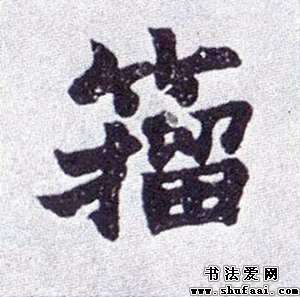 籀
书法爱网
www.shufaai.com